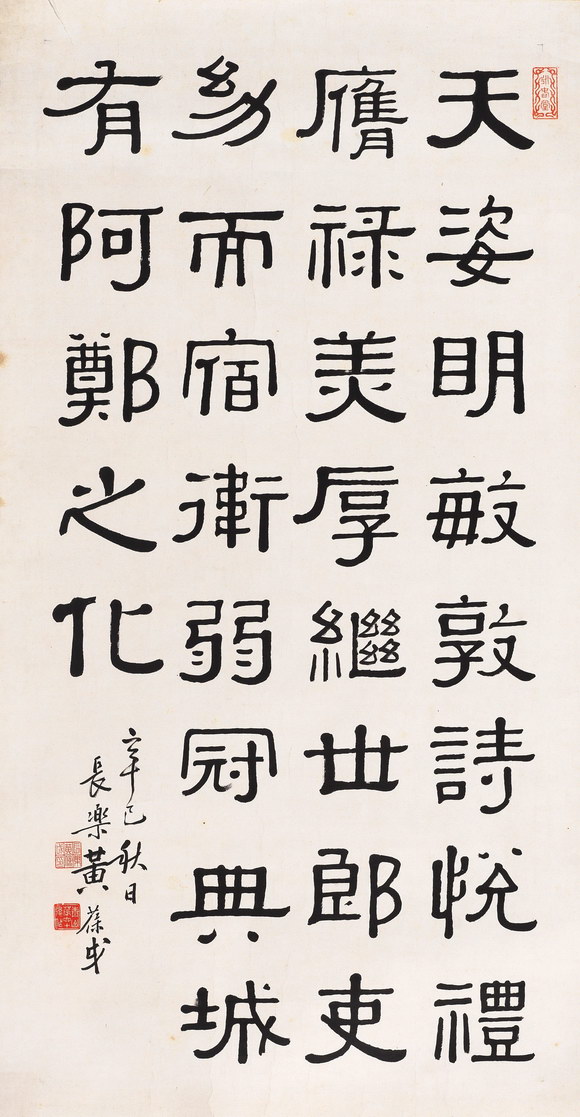 天姿明敏敦詩悅禮
膺祿美厚繼世郎吏
幼而宿衛弱冠典城
有阿鄭之化
辛巳秋日
長樂黃葆戉